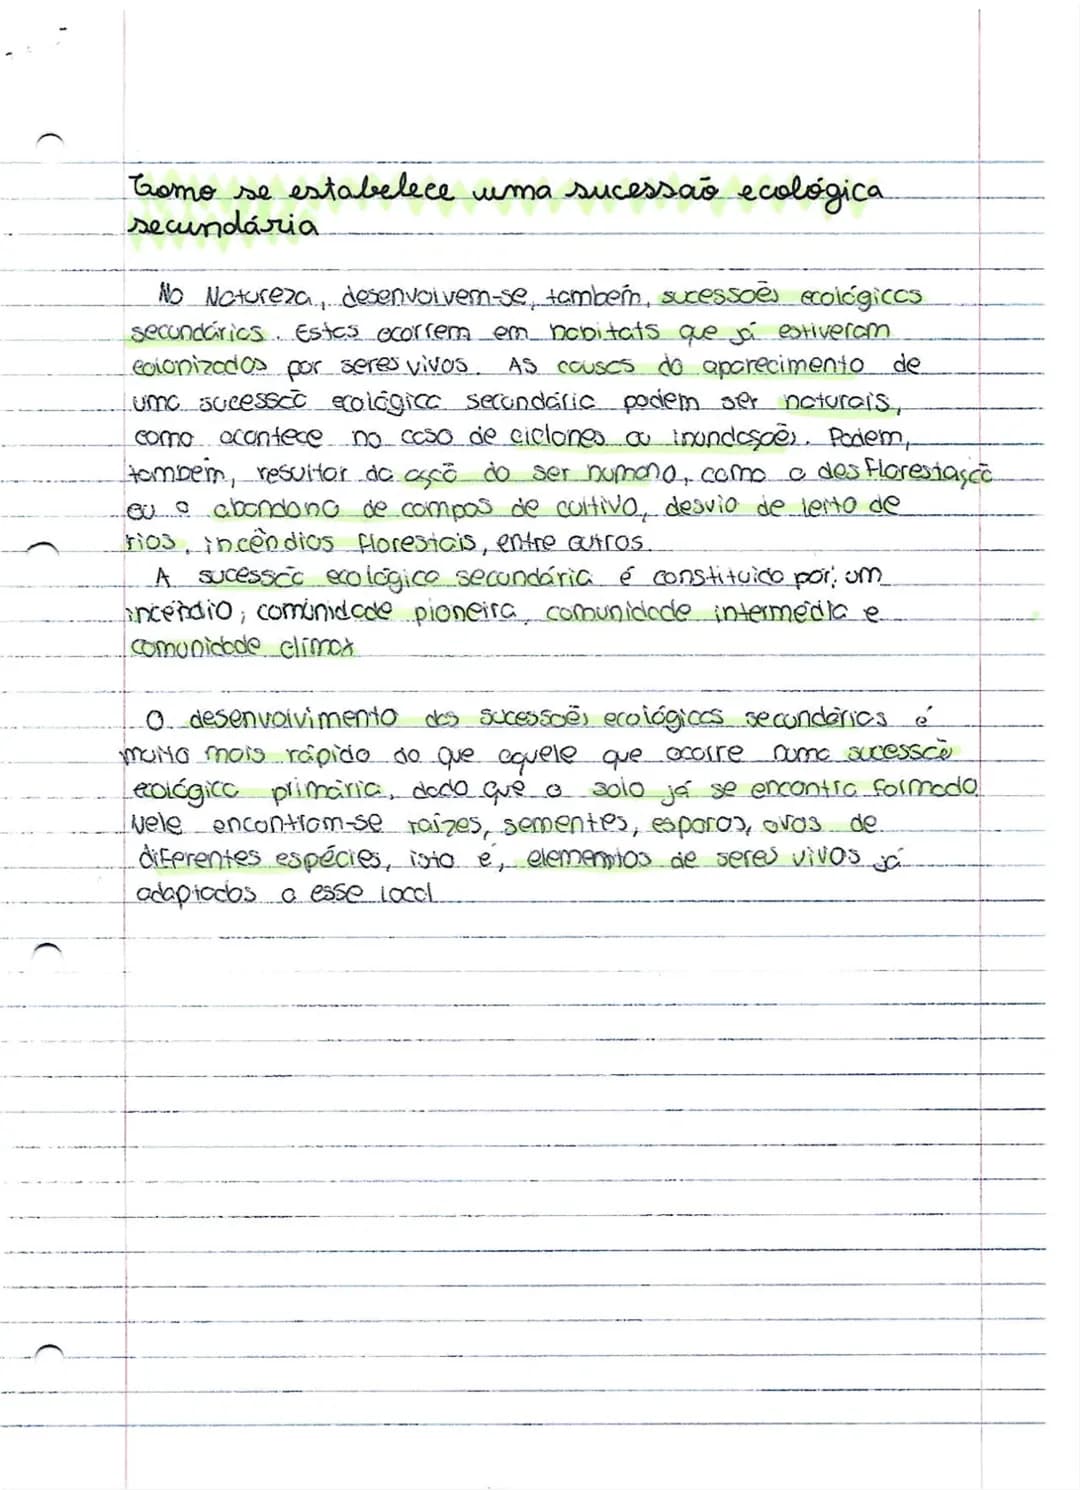 Como se estabelece uma sucessão ecológica
secundária
Na Natureza, desenvolvem-se, também, sucessões ecológicas
secundárias. Estas ocorrem em habitats que já estiveram
colonizados por seres vivos. As causas do aparecimento de
uma sucessão ecológica secundária podem ser naturais,
como acontece no caso de ciclones ou inundações. Podem,
também, resultar da ação do ser humano, como a desflorestação
ou o abandono de campos de cultivo, desvio de leito de
rios, incêndios florestais, entre outros.
A sucessão ecológica secundária é constituida por: um
incêndio, comunidade pioneira, comunidade intermédia e
comunidade clímax
O desenvolvimento das sucessões ecológicas secundárias é
muito mais rápido do que aquele que ocorre numa sucessão
ecológica primária, dado que o solo já se encontra formado.
Nele encontram-se raízes, sementes, esporos, ovos de
diferentes espécies, isto é, elementos de seres vivos já
adaptados a esse local